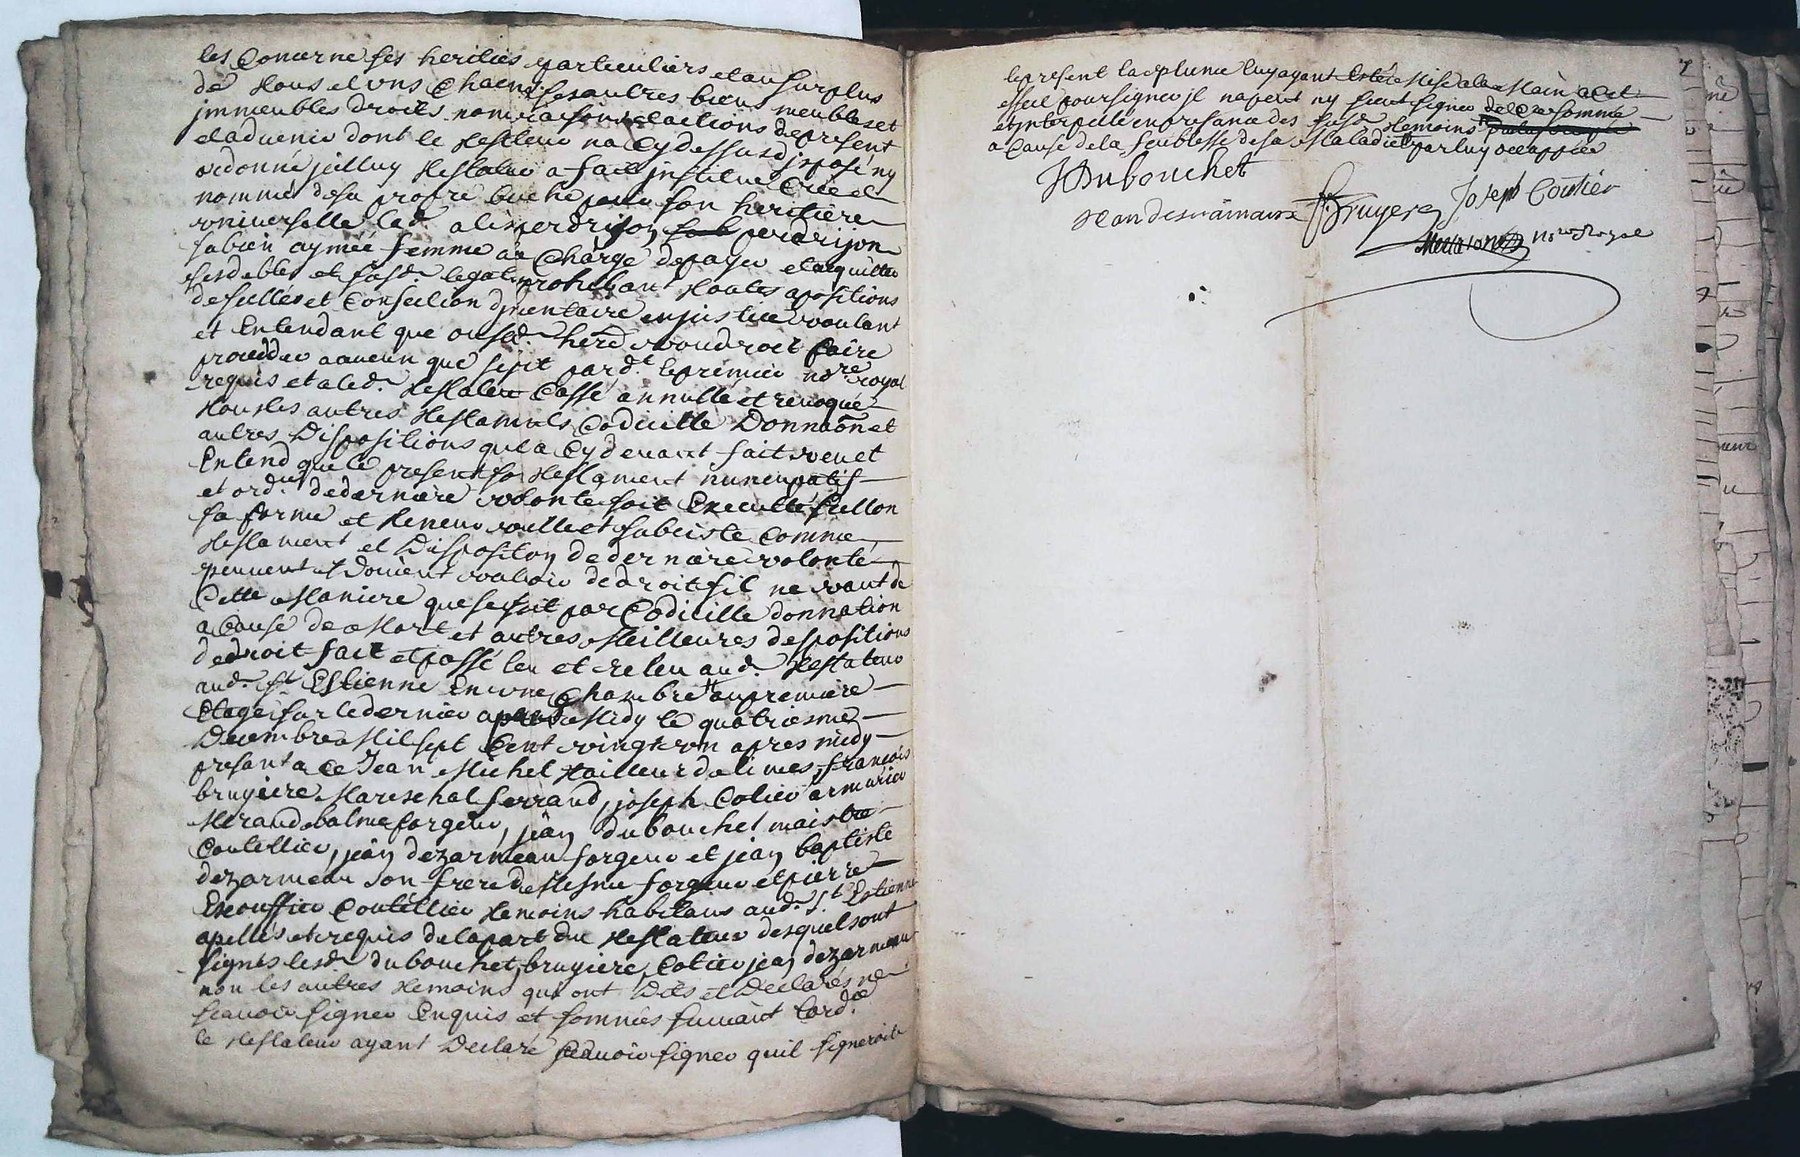 les Concerne ses heritiers particuliers et au surplus
de tous et uns Chacuns ses autres biens meubles et
jmmeubles droits noms raisons et actions de present
et aduenir dont le testateur na Cy dessus disposé ny
ordonné jcelluy testateur a fait jnstitué Créé et
nommé de sa propre bouche pour son heritiere
vniverselle lad. perdrijon
sa bien aymée femme a la Charge de payer et acquitter
ses debtes et susd. legats prohibant toutes apositions
de scellés et Confection djnuentaire en justice voulant
et Entendant que ou sad. herd. voudroit faire
proceder a aucun que ce soit par d.t le premier nore royal
requis et a led. testateur Cassé annullé et reuoqué
tous les autres testaments Codicille Donnaon et
autres Dispositions qu'il a Cy deuant fait veut et
Entend que le present son testament nuncupatif
et ord. de derniere volonté soit Executté sellon
sa forme et teneur vaille et subciste Comme
testament et Disposition de derniere volonté
peuuent et doiuent valoir de droit sil ne vaut de
Cette Maniere que ce soit par Codicille donnation
a Cause de Mort et autres Meilleures despositions
de droit fait et passé leu et releu aud. testateur
aud. St. Estienne En vne Chambre au premiere
Etage sur le dernier apres Midy le quatriesme
Decembre Mil sept Cent vingt vn apres midy
presant a Ce Jean Michel tailleur de limes, françois
bruyiere Mareschal ferrand, joseph Cotier armurier
forgeur, jean dubouchet maistre
Coutellier, jean dezarmeau forgeur et jean baptiste
dezarmeau son frere forgeur et pierre
Escouffier Coutellier temoins habitans aud. St. Estienne
apellés et requis de la part du testateur desquels ont
signés lesd. dubouchet, bruyiere, Cotier, jean dezarmeau
non les autres temoins qui ont Dits et Declarés ne
scauoir signer Enquis et sommés suiuant lord.ce
le testateur ayant Declaré scauoir signer quil signeroit
le present la plume luy ayant Esté Mise a la Main a Cet
effect pour signer jl na peut ny sceut signer de Ce sommé
et jnterpellé en presance des susd. temoins
a Cause de la foiblesse de sa Maladie
JDubouchet
F Bruyere Joseph Coutier
Jean desarmaux
nore Royal